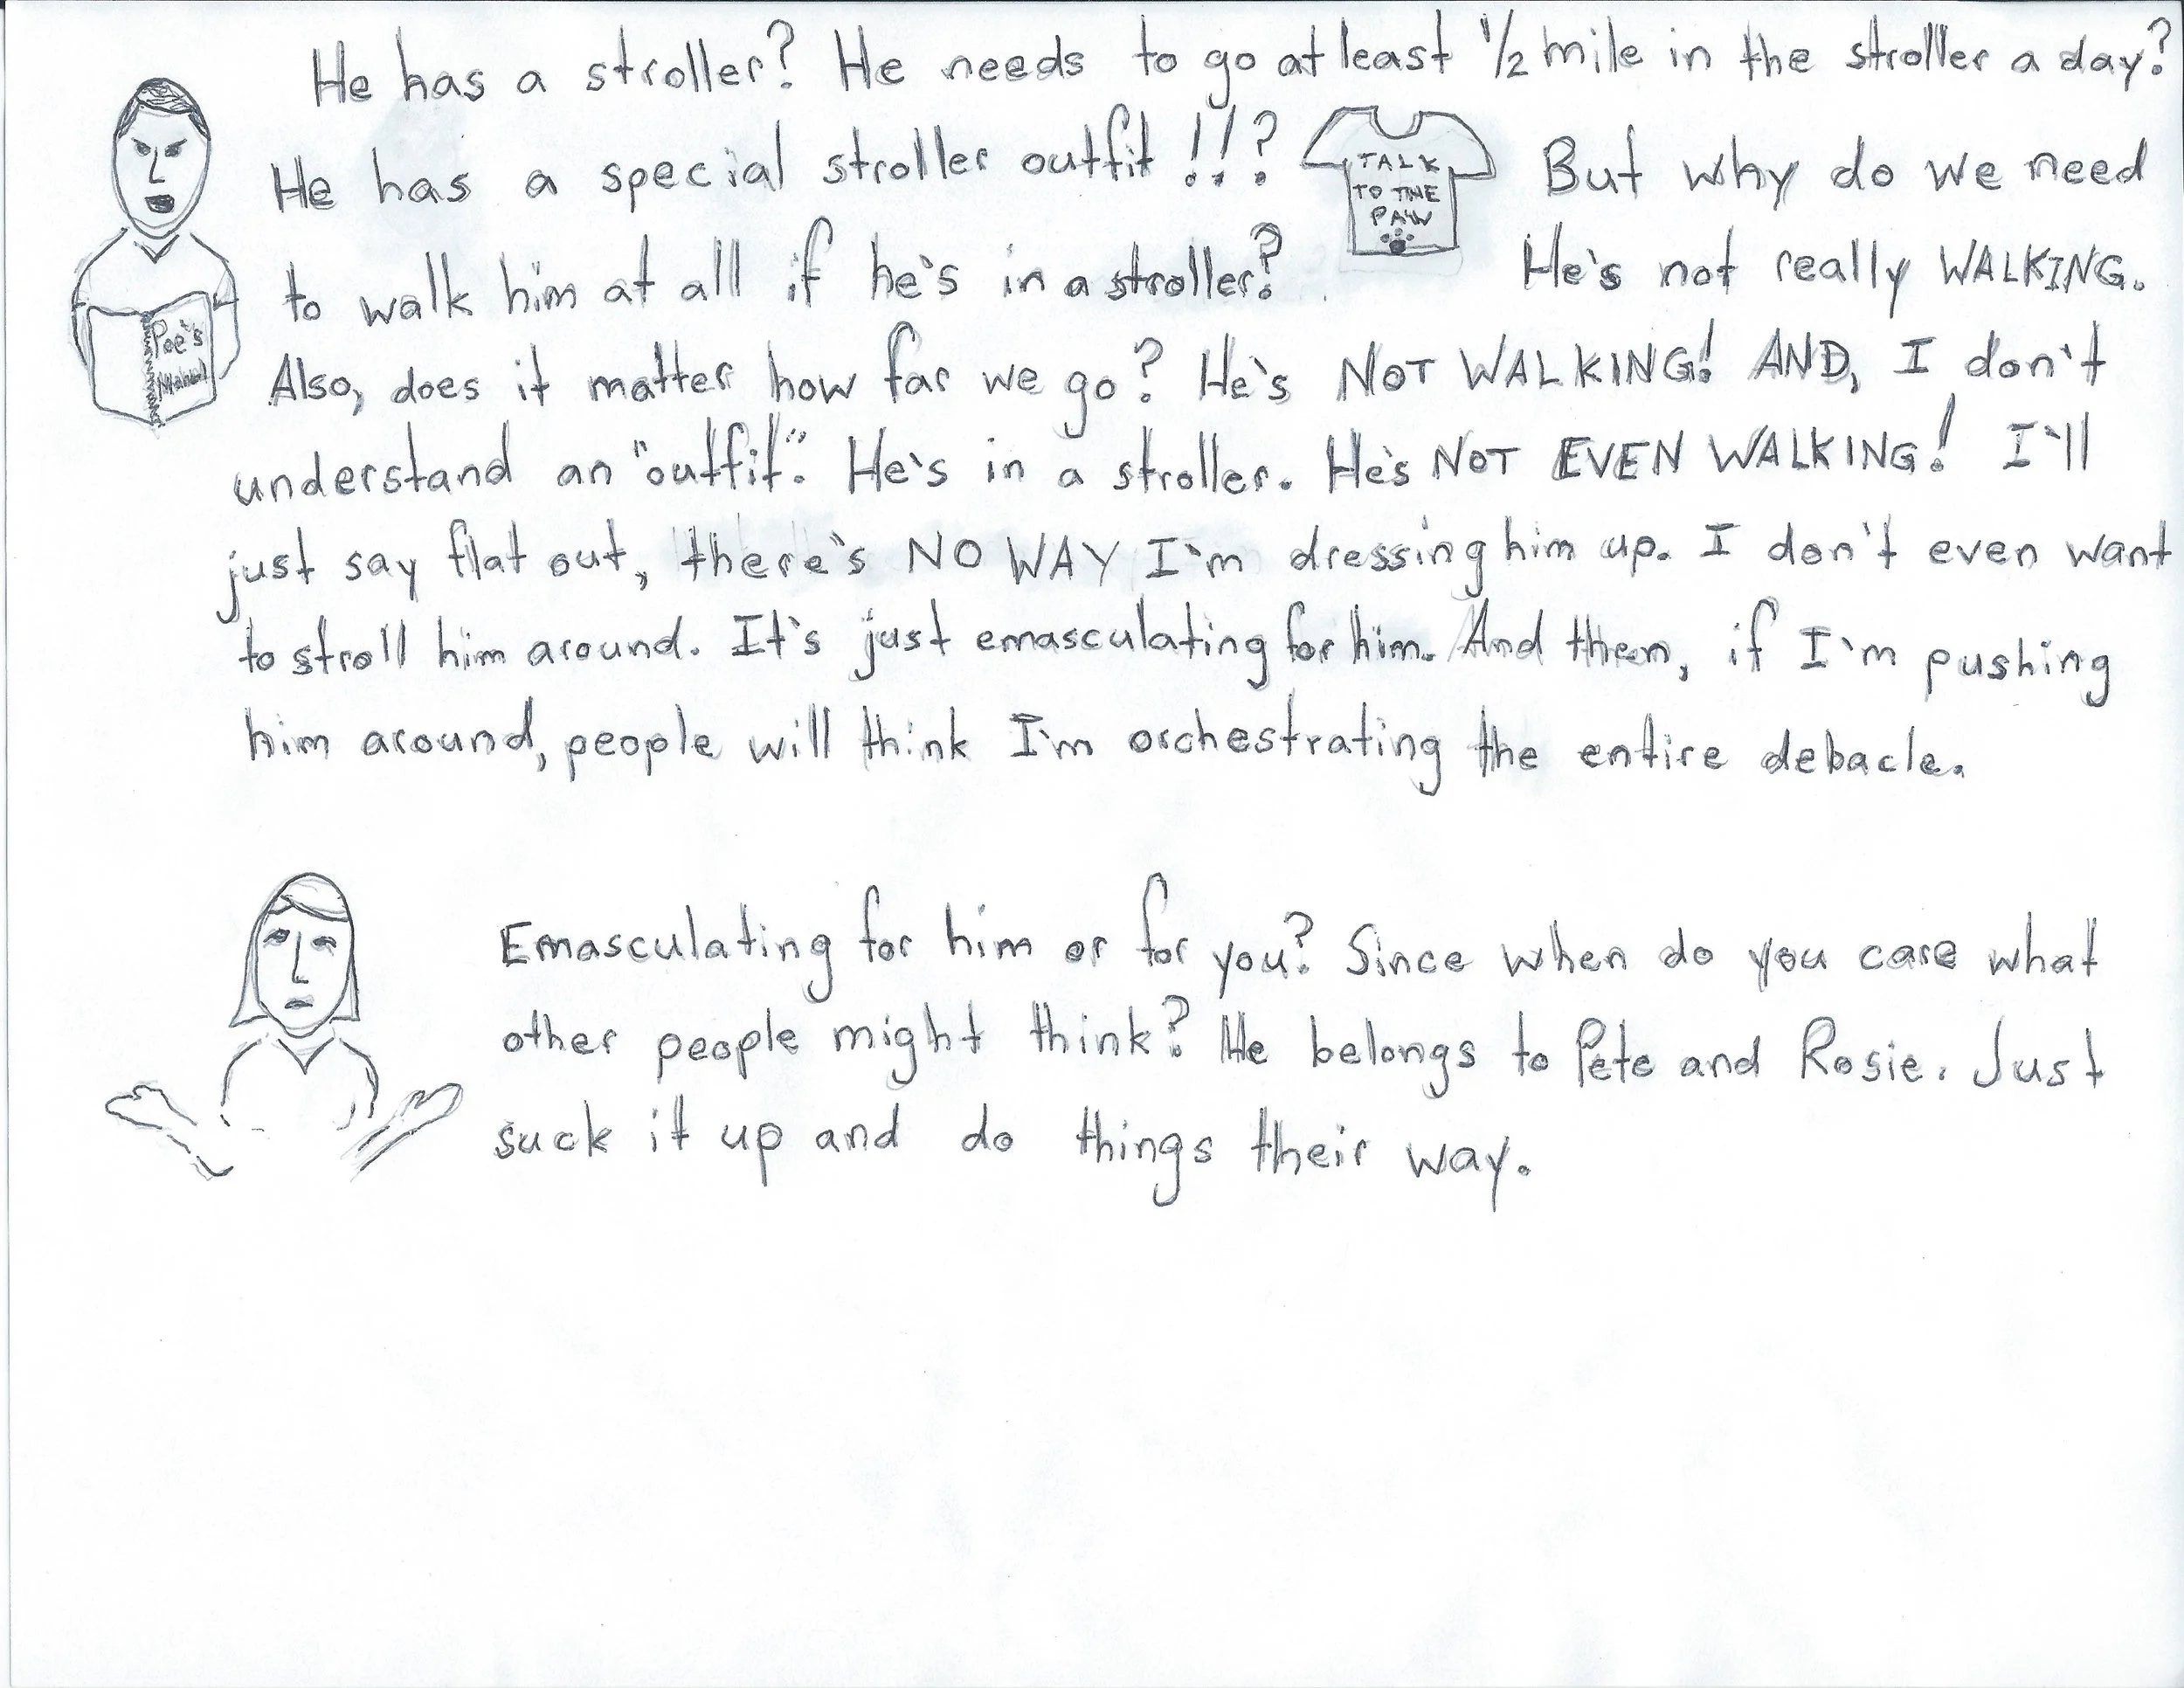 He has a stroller? He needs to go at least 1/2 mile in the stroller a day?
He has a special stroller outfit!!?
TALK
TO THE
PAW
But why do we need
to walk him at all if he's in a stroller?
He's not really WALKING.
Poe's
Manual
Also, does it matter how far we go? He's NOT WALKING! AND, I don't
understand an "outfit". He's in a stroller. He's NOT EVEN WALKING! I'll
just say flat out, there's NO WAY I'm dressing him up. I don't even want
to stroll him around. It's just emasculating for him. And then, if I'm pushing
him around, people will think I'm orchestrating the entire debacle.
Emasculating for him or for you? Since when do you care what
other people might think? He belongs to Pete and Rosie. Just
suck it up and do things their way.